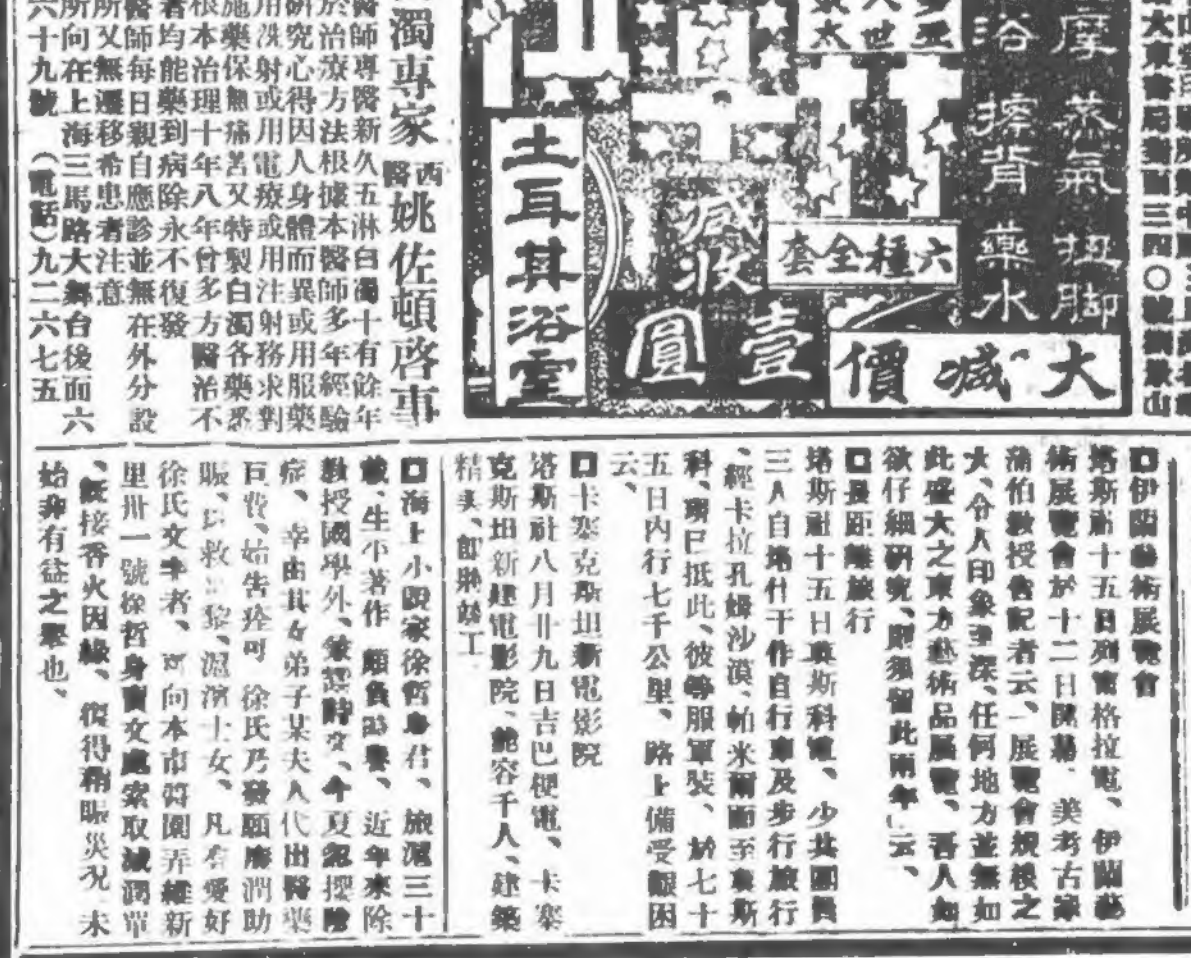 大東書局對面三四〇號
摩蒸氣扭脚
浴擦背藥水
大減價
六種全套
減收
壹圓
土耳其浴室
濁專家 西醫 姚佐頓啓事
醫師專醫新久五淋白濁十有餘年
於治療方法根據本醫師多年經驗
研究心得因人身體而異或用服藥
用洗射或用電療或用注射務求對
施藥保無痛苦又特製白濁各藥悉
根本治理十年八年曾多方醫治不
者均能藥到病除永不復發
醫師每日親自應診並無在外分設
所又無遷移希患者注意
所向在上海三馬路大舞台後面六
六十九號 (電話)九二六七五
口伊蘭藝術展覽會
塔斯社十五日列寧格拉電、伊蘭藝
術展覽會於十二日開幕、美考古家
蒲伯教授告記者云、「展覽會規模之
大、令人印象至深、任何地方並無如
此盛大之東方藝術品展覽、吾人如
欲仔細研究、則須留此兩年」云、
口長距離旅行
塔斯社十五日莫斯科電、少共團員
三人自塔什干作自行車及步行旅行
、經卡拉孔姆沙漠、帕米爾而至莫斯
科、現已抵此、彼等服軍裝、於七十
五日內行七千公里、路上備受艱困
云、
口卡塞克斯坦新電影院
塔斯社八月廿九日吉巴梗電、卡塞
克斯坦新建電影院、能容千人、建築
精美、卽將竣工
口海上小說家徐哲身君、旅滬三十
載、生平著作 頗負時譽、近年來除
敎授國學外、兼 時文、今夏忽攖險
症、幸由其女弟子某夫人代出醫藥
巨費、始吿痊可 徐氏乃發願廉潤助
賑、以救 黎、滬濱士女、凡有愛好
徐氏文字者、可向本市 園弄維新
里卅一號徐哲身賣文處索取減潤單
、旣接香火因緣、復得稍賑災况 未
始非有益之舉也、